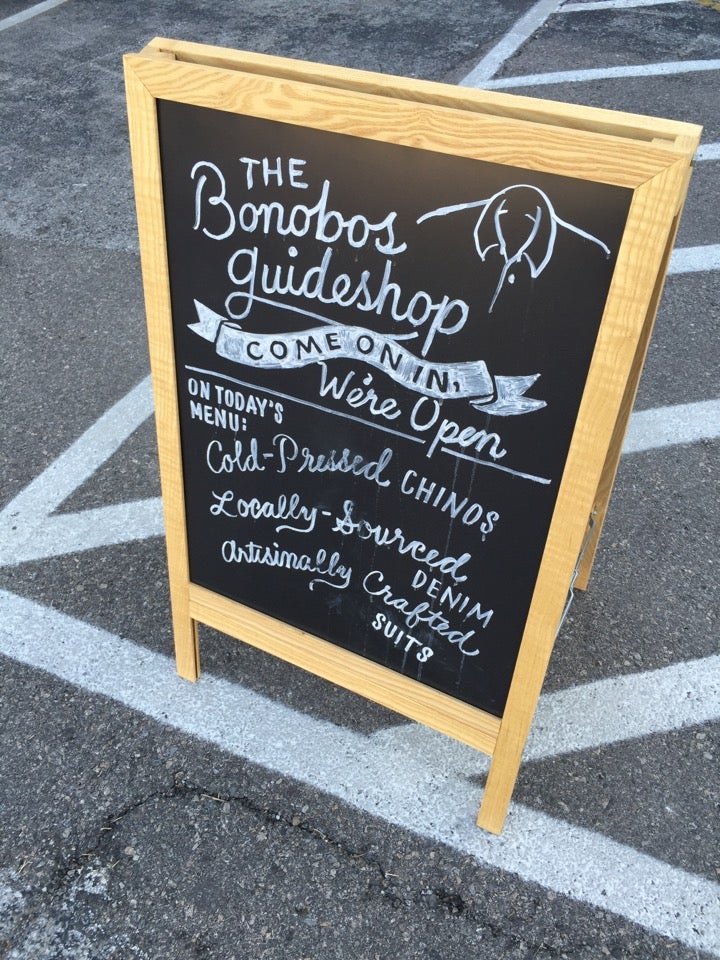 THE
Bonobos
guideshop
COME ON IN,
We're Open
ON TODAY'S
MENU:
Cold-Pressed CHINOS
Locally-Sourced
DENIM
Artisinally Crafted
SUITS